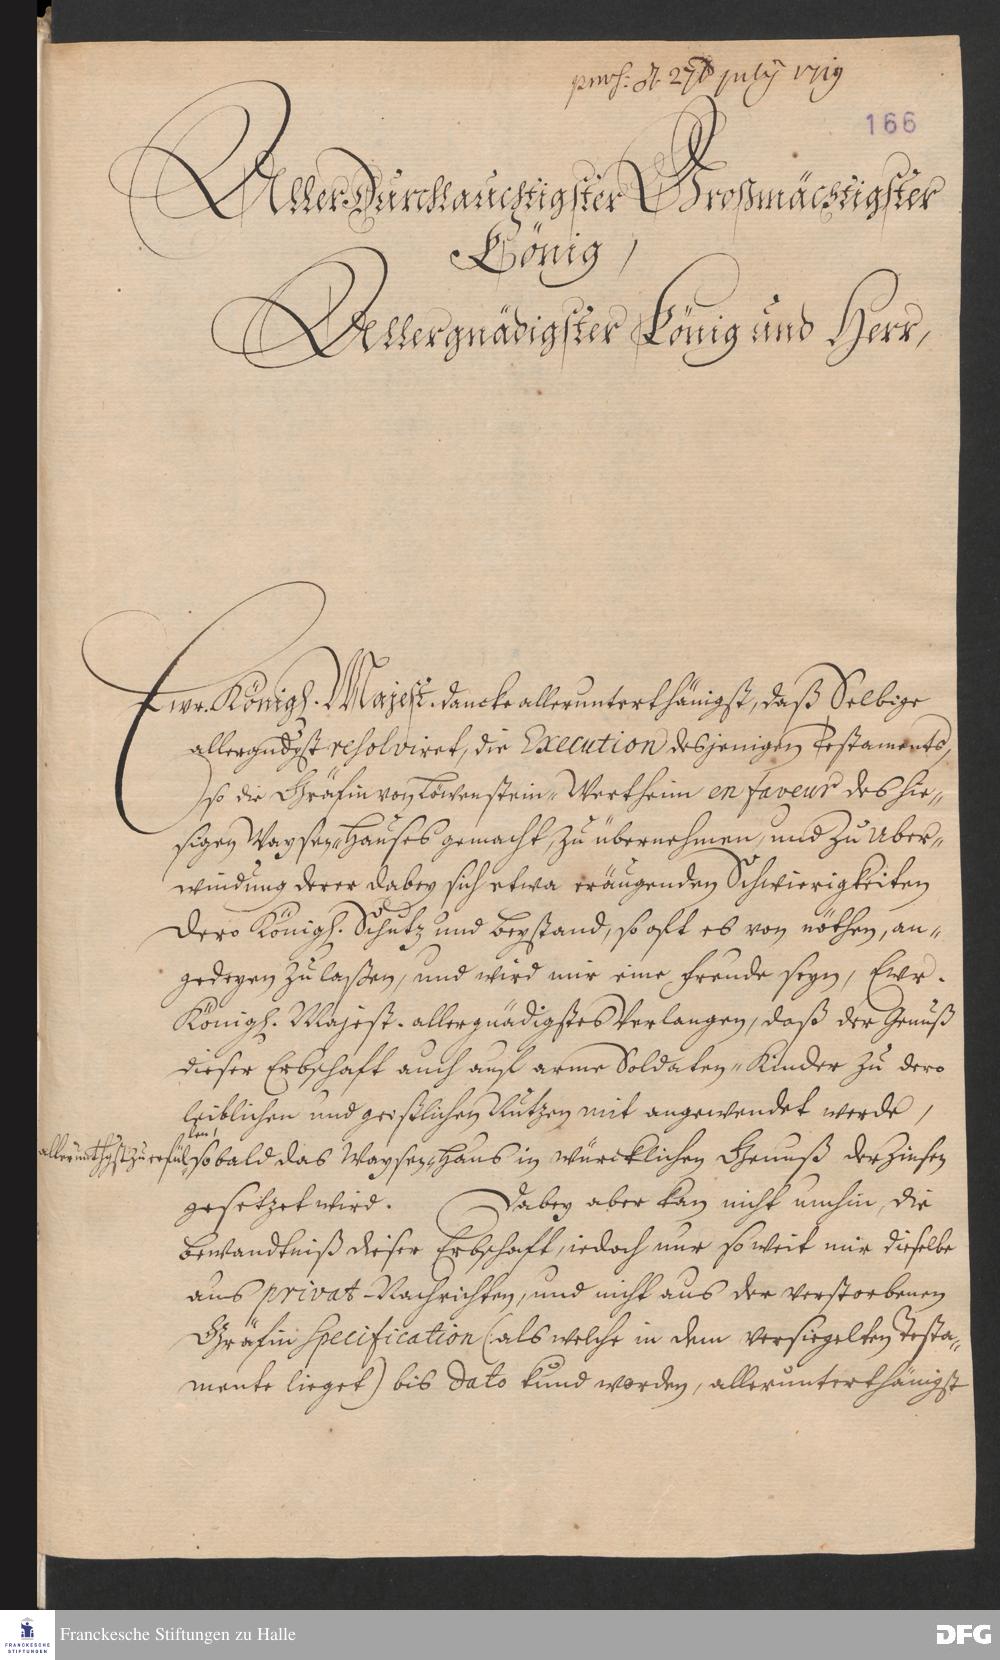 præs: d. 27t July 1719
166
AllerDurchlauchtigster Großmächtigster
König,
Allergnädigster König und Herr,
Ewr. Königl. Majest. dancke allerunterthänigst, daß Selbige
allergndgst resolviret, die Execution desjenigen Testaments,
so die Gräfin von Löwenstein-Wertheim en faveur des hie-
sigen Waysen-Hauses gemacht, zu übernehmen, und zu Über-
windung derer dabey sich etwa eräugenden Schwierigkeiten
Dero Königl. Schutz und beystand, so oft es von nöthen, an-
gedeyen zu laßen, und wird mir eine freude seyn, Ewr.
Königl. Majest. allergnädigstes Verlangen, daß der Genuß
dieser Erbschaft auch auf arme Soldaten-Kinder zu dero
leiblichen und geistlichen Nutzen mit angewendet werde,
allerunthgst zu erfül
len,
sobald das Waysen-Haus in würcklichen Genuß der Zinsen
gesetzet wird. Dabey aber kan nicht umhin, die
bewandtniß dieser Erbschaft, iedoch nur so weit mir dieselbe
aus privat-Nachrichten, und nicht aus der verstorbenen
Gräfin Specification (als welche in dem versiegelten Testa-
mente lieget) bis dato kund worden, allerunterthänigst
FRANCKESCHE
STIFTUNGEN
Franckesche Stiftungen zu Halle
DFG